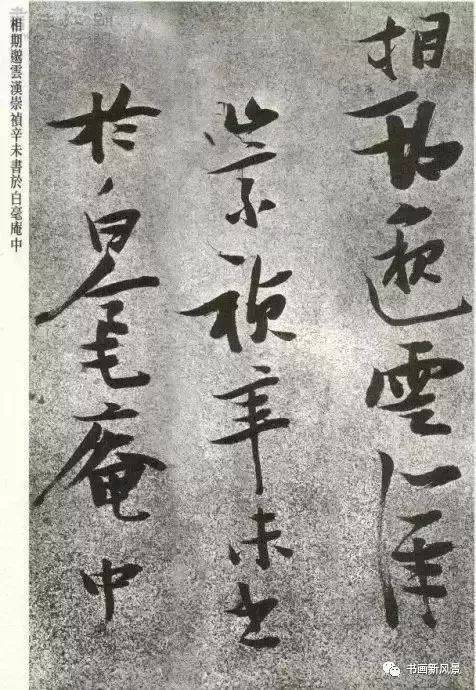 相期邈雲漢
崇禎辛未書
於白毫庵中
相期邈雲漢崇禎辛未書於白毫庵中
书画新风景